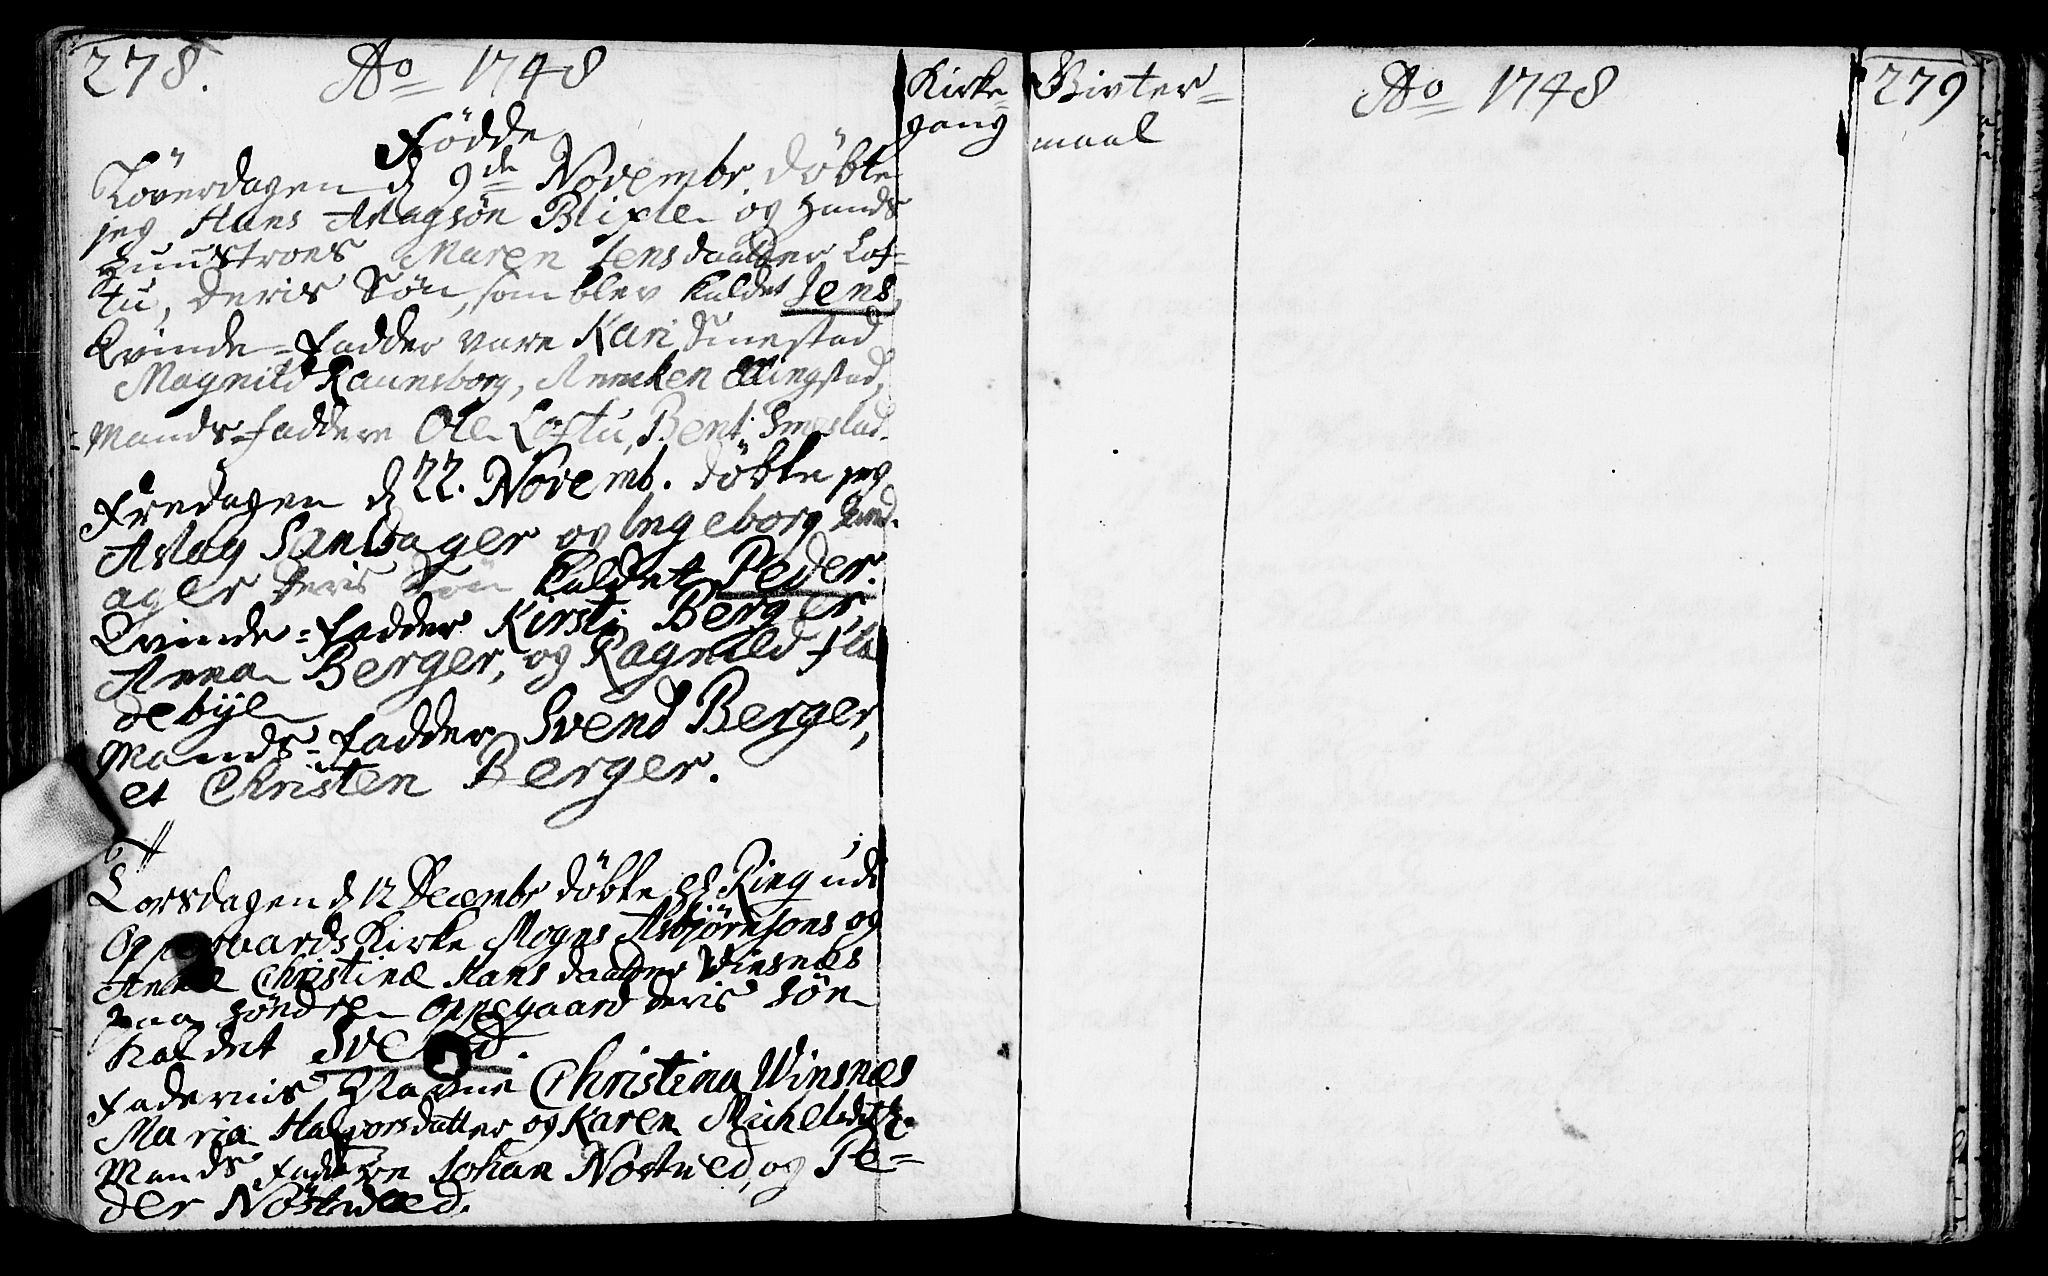 278. Ao 1748
Fødde
Löverdagen d 9de Novembr. döbte
jeg Hans Aslagsön Blixle og hands
Huustroes Maren Jensdaatter Lof-
tu, deris Sön, som blev kaldet Jens,
Qvinde-Fadder vare Kari Smestad
Magnild Raunsborg, Anneken Ellingstad,
Mands-faddere Ole Loftu, Bent Smestad.
Fredagen d 22. Novemb. döbte jeg
Aslag Sandager og Ingeborg Sand-
ager deris Sön kaldet Peder.
Qvinde-Fadder Kirsti Berger,
Anna Berger, og Ragnild Fla
debye
Mands-Fadder Svend Berger,
et Christen Berger.
Torsdagen d 12 Decembr döbte Hr Ring udi
Oppegaards Kirke Mogns Asbjörnsons og
Anne Christinæ Hansdaatter Winsnæs
paa Söndre Oppegaard deris Sön
Kaldet Svend.
Fadernis Nafne Christina Winsnæs
Maria Halvorsdatter og Karen Michelsdttr.
Mands Faddere Johan Nöstved, og Pe-
der Nöstved.
Kirke-
gang
Givter-
maal
Ao 1748
279